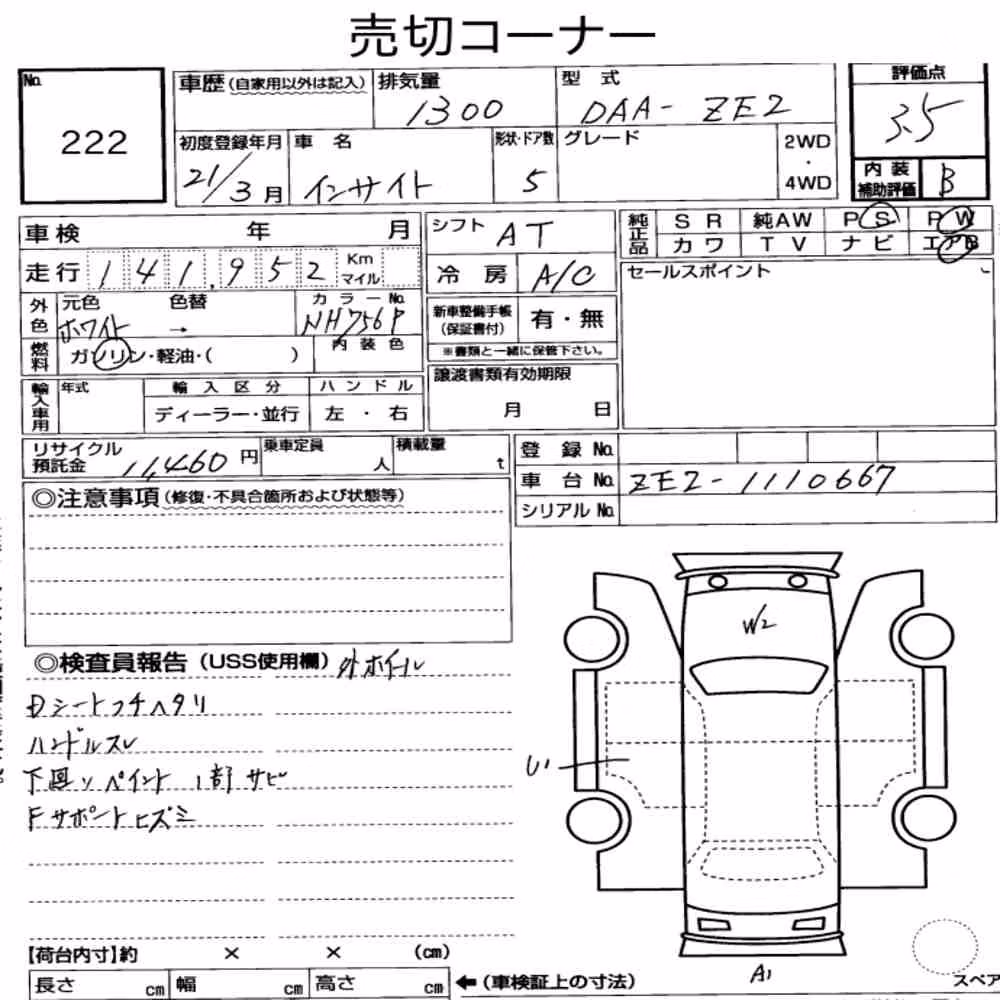 売切コーナー
No. 222
車歴(自家用以外は記入) 排気量 1300 型式 DAA-ZE2 評価点 3.5
初度登録年月 21/3月 車名 インサイト 形状・ドア数 5 グレード 2WD・4WD
内装補助評価 B
車検 年 月 シフト AT 純正品 SR 純AW PS PW
カワ TV ナビ エアB
走行 141,952 Km マイル 冷房 A/C セールスポイント
外色 元色 ホワイト 色替 → カラーNo. NH756P 新車整備手帳(保証書付) 有・無
燃料 ガソリン・軽油・( ) 内装色 ※書類と一緒に保管下さい。
輸入車用 年式 輸入区分 ハンドル 譲渡書類有効期限
ディーラー・並行 左・右 月 日
リサイクル預託金 11,460円 乗車定員 人 積載量 t 登録No.
車台No. ZE2-1110667
シリアルNo.
◎注意事項(修復・不具合箇所および状態等)
◎検査員報告(USS使用欄) 外ホイール
Dシートフチヘタリ
ハンドルスレ
下回りペイント 1部サビ
Fサポートヒズミ
W2
U1
A1
【荷台内寸】約 × × (cm)
長さ cm 幅 cm 高さ cm ←(車検証上の寸法)
スペア